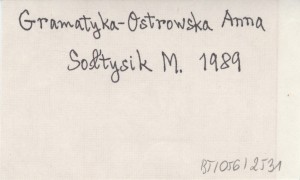 Gramatyka-Ostrowska Anna
Sołtysik M. 1989
BJ/056/2531